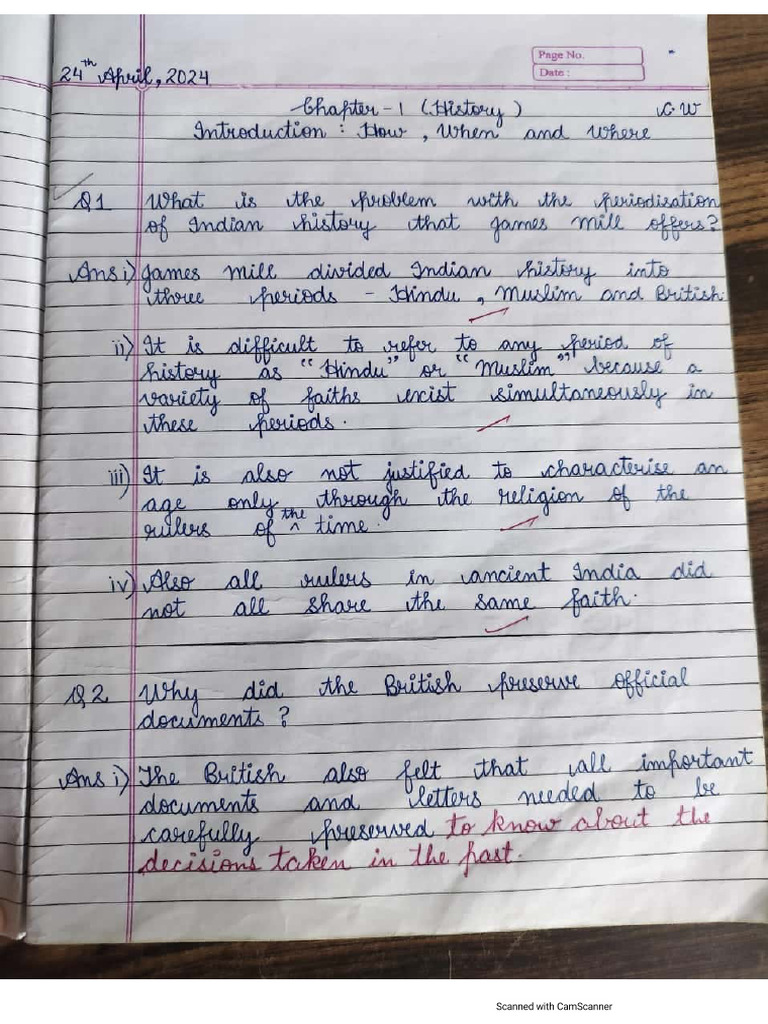 Page No.
Date :
24th April, 2024
Chapter - 1 (History) C.W
Introduction : How, When and Where
Q1 What is the problem with the periodisation
of Indian history that James Mill offers?
Ans i) James Mill divided Indian history into
three periods - Hindu, Muslim and British.
ii) It is difficult to refer to any period of
history as "Hindu" or "Muslim" because a
variety of faiths exist simultaneously in
these periods.
iii) It is also not justified to characterise an
age only through the religion of the
rulers of the time.
iv) Also all rulers in ancient India did
not all share the same faith.
Q2 Why did the British preserve official
documents?
Ans i) The British also felt that all important
documents and letters needed to be
carefully preserved to know about the
decisions taken in the past.
Scanned with CamScanner